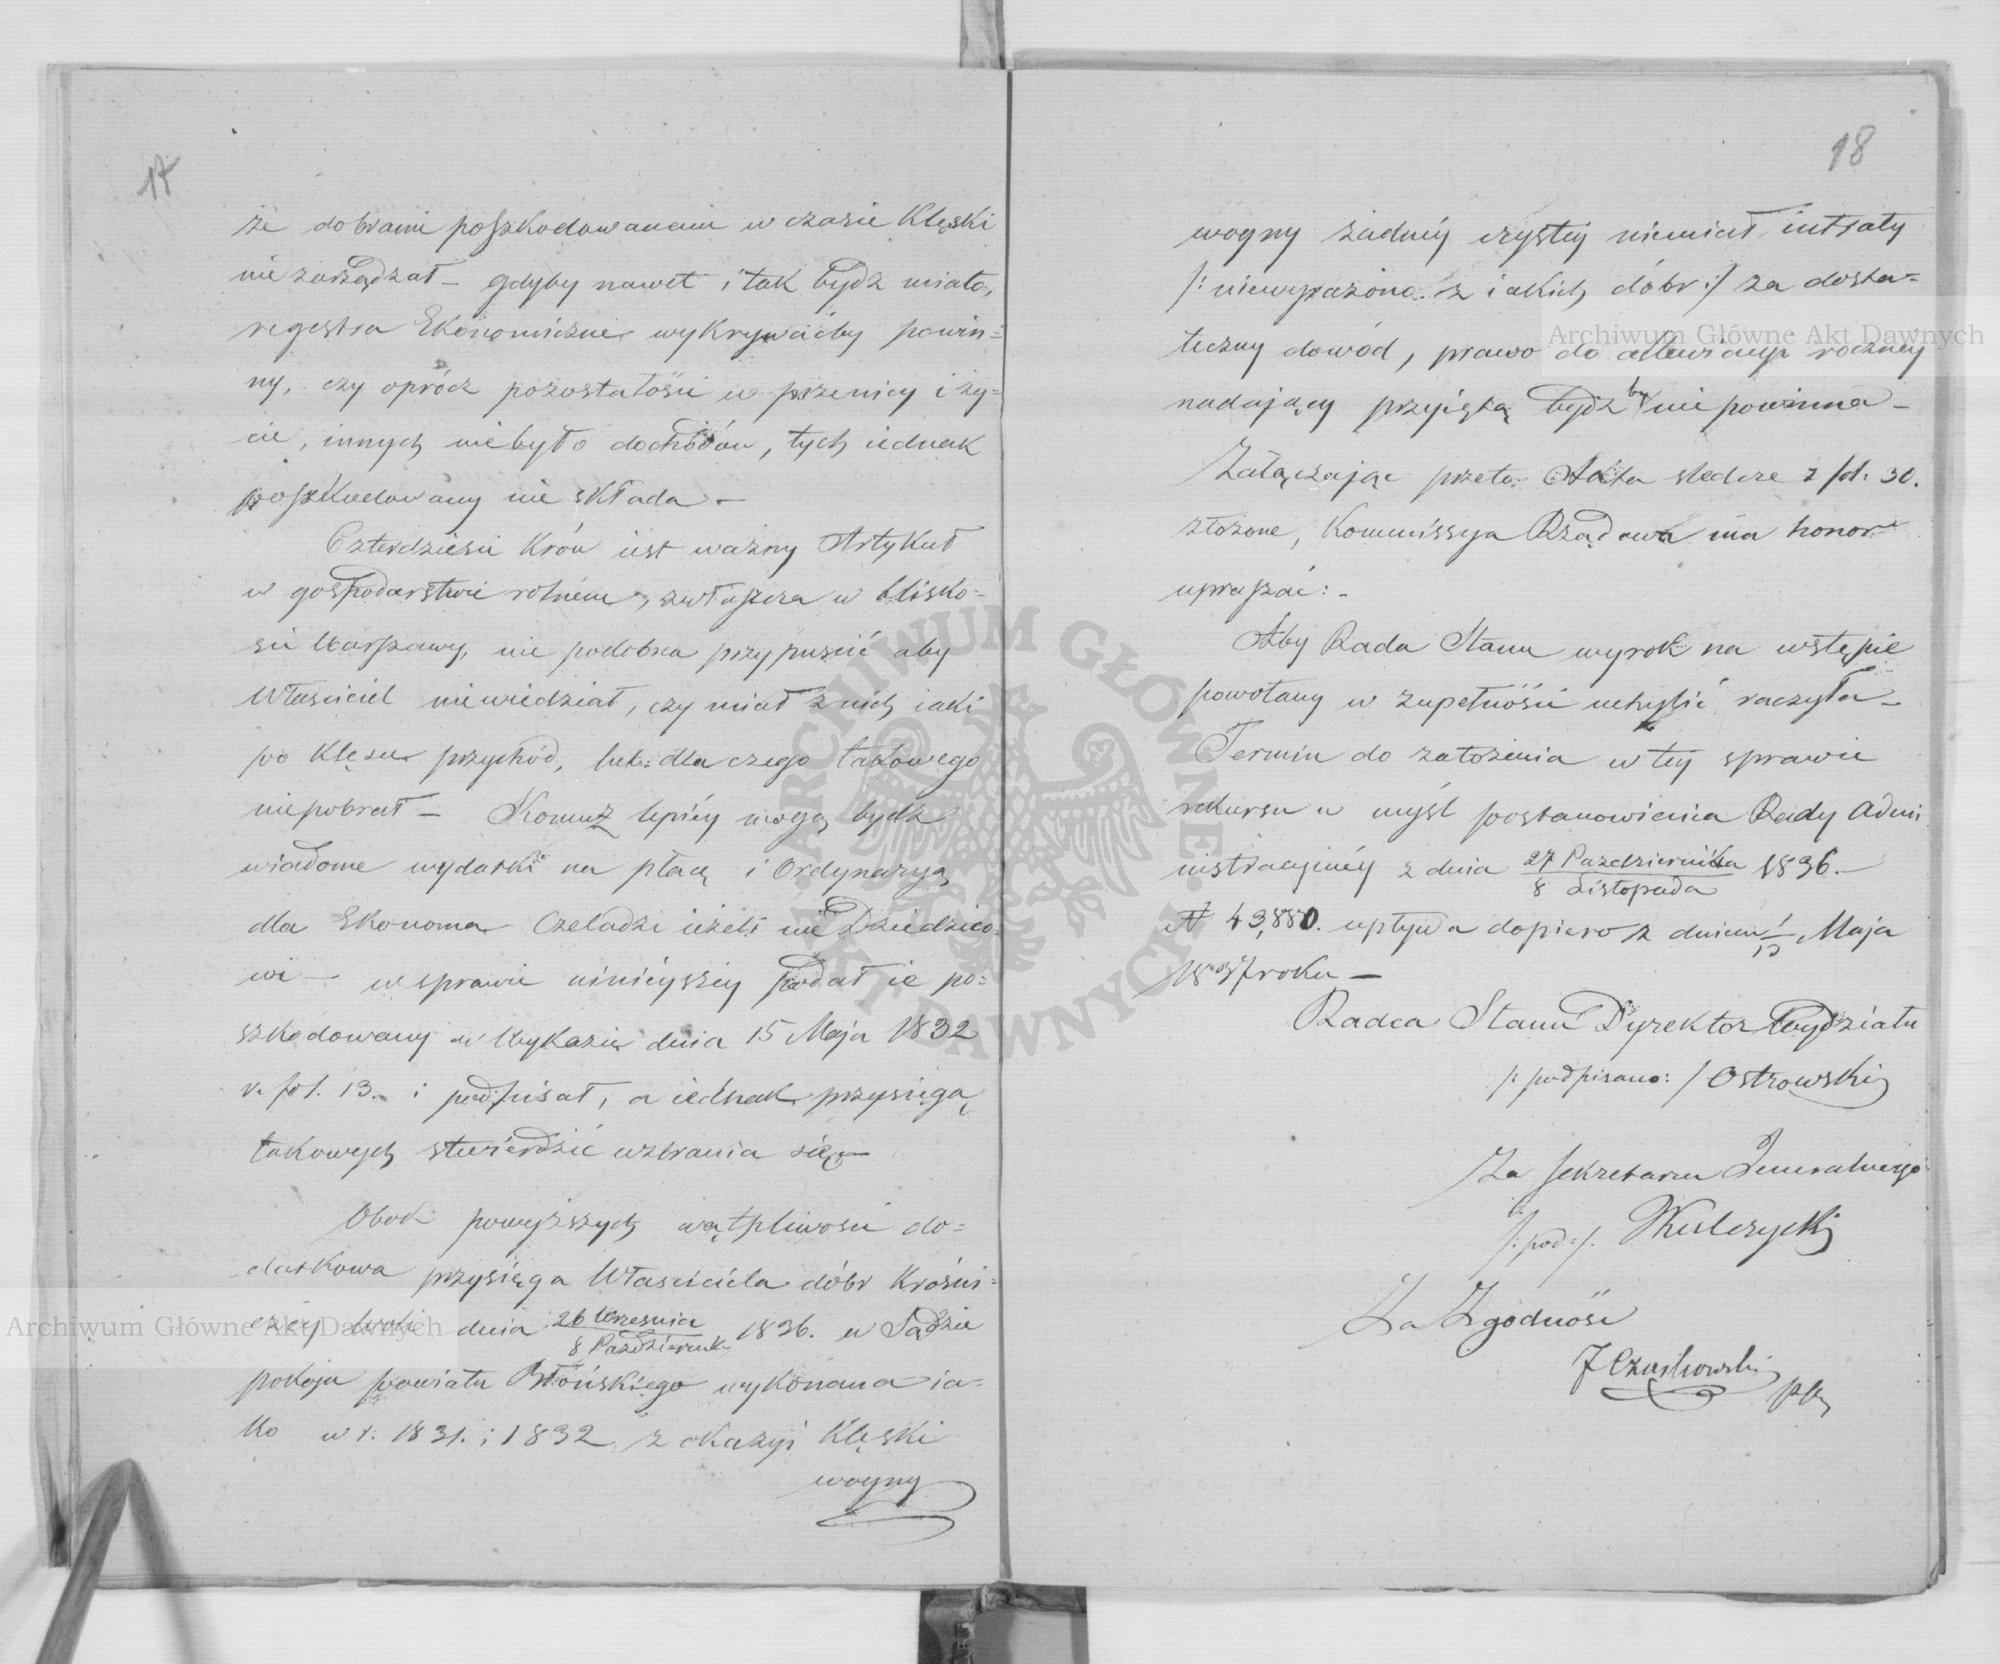 17
że dobrami poszkodowanemi w czasie Klęski
nie zarządzał – gdyby nawet i tak bydz miało,
regestra Ekonomiczne wykrywaćby powin=
ny, czy oprócz pozostałości w pszenicy i ży=
cie, innych niebyło dochodów, tych iednak
poszkodowany nie składa –
Czterdzieści Krów iest ważny Artykuł
w gospodarstwie rolném, zwłaszcza w blisko=
ści Warszawy, nie podobna przypuścić aby
Właściciel niewiedział, czy miał z nich iaki
po Klęsce przychód, lub dla czego takowego
niepobrał – Komuż lepiéy mogą bydz
wiadome wydatki na płacę i Ordynaryą
dla Ekonoma Czeladzi ieżeli nie Dziedzico=
wi – w sprawie ninieyszéy podał ie po=
szkodowany w Wykazie dnia 15 Maja 1832
v. fol. 13. i podpisał, a iednak przysięgą
takowych stwierdzić wzbrania się –
Obok powyższych wątpliwości do=
datkowa przysięga Właściciela dóbr Krośni=
czéy Woli dnia 26 Września / 8 Październik 1836. w Sądzie
pokoju powiatu Błońskiego wykonana ia=
ko w r. 1831. i 1832 z okazyi Klęski
woyny
18
woyny żadnéy czystéy niemiał intraty
/: niewyrażono z iakich dóbr :/ za dosta=
teczny dowód, prawo do allewiacyi roczney
nadający przyiętą bydź by nie powinna –
Załączając przeto Akta śledcze z fol. 30.
złożone, Kommissya Rządowa ma honor
upraszać: –
Aby Rada Stanu wyrok na wstępie
powołany w zupełności uchylić raczyła –
Termin do założenia w téy sprawie
rekursu w myśl postanowienia Rady Admi
nistracyjnéy z dnia 27 Października / 8 Listopada 1836. –
N 43,880. upływa dopiero z dniem 1/13 Maja
1837 roku –
Radca Stanu Dyrektor Wydziału
/: podpisano: / Ostrowski
Za Sekretarza Jeneralnego
/: pod: /.
Za Zgodność
Archiwum Główne Akt Dawnych
Archiwum Główne Akt Dawnych
ARCHIWUM GŁÓWNE
AKT DAWNYCH